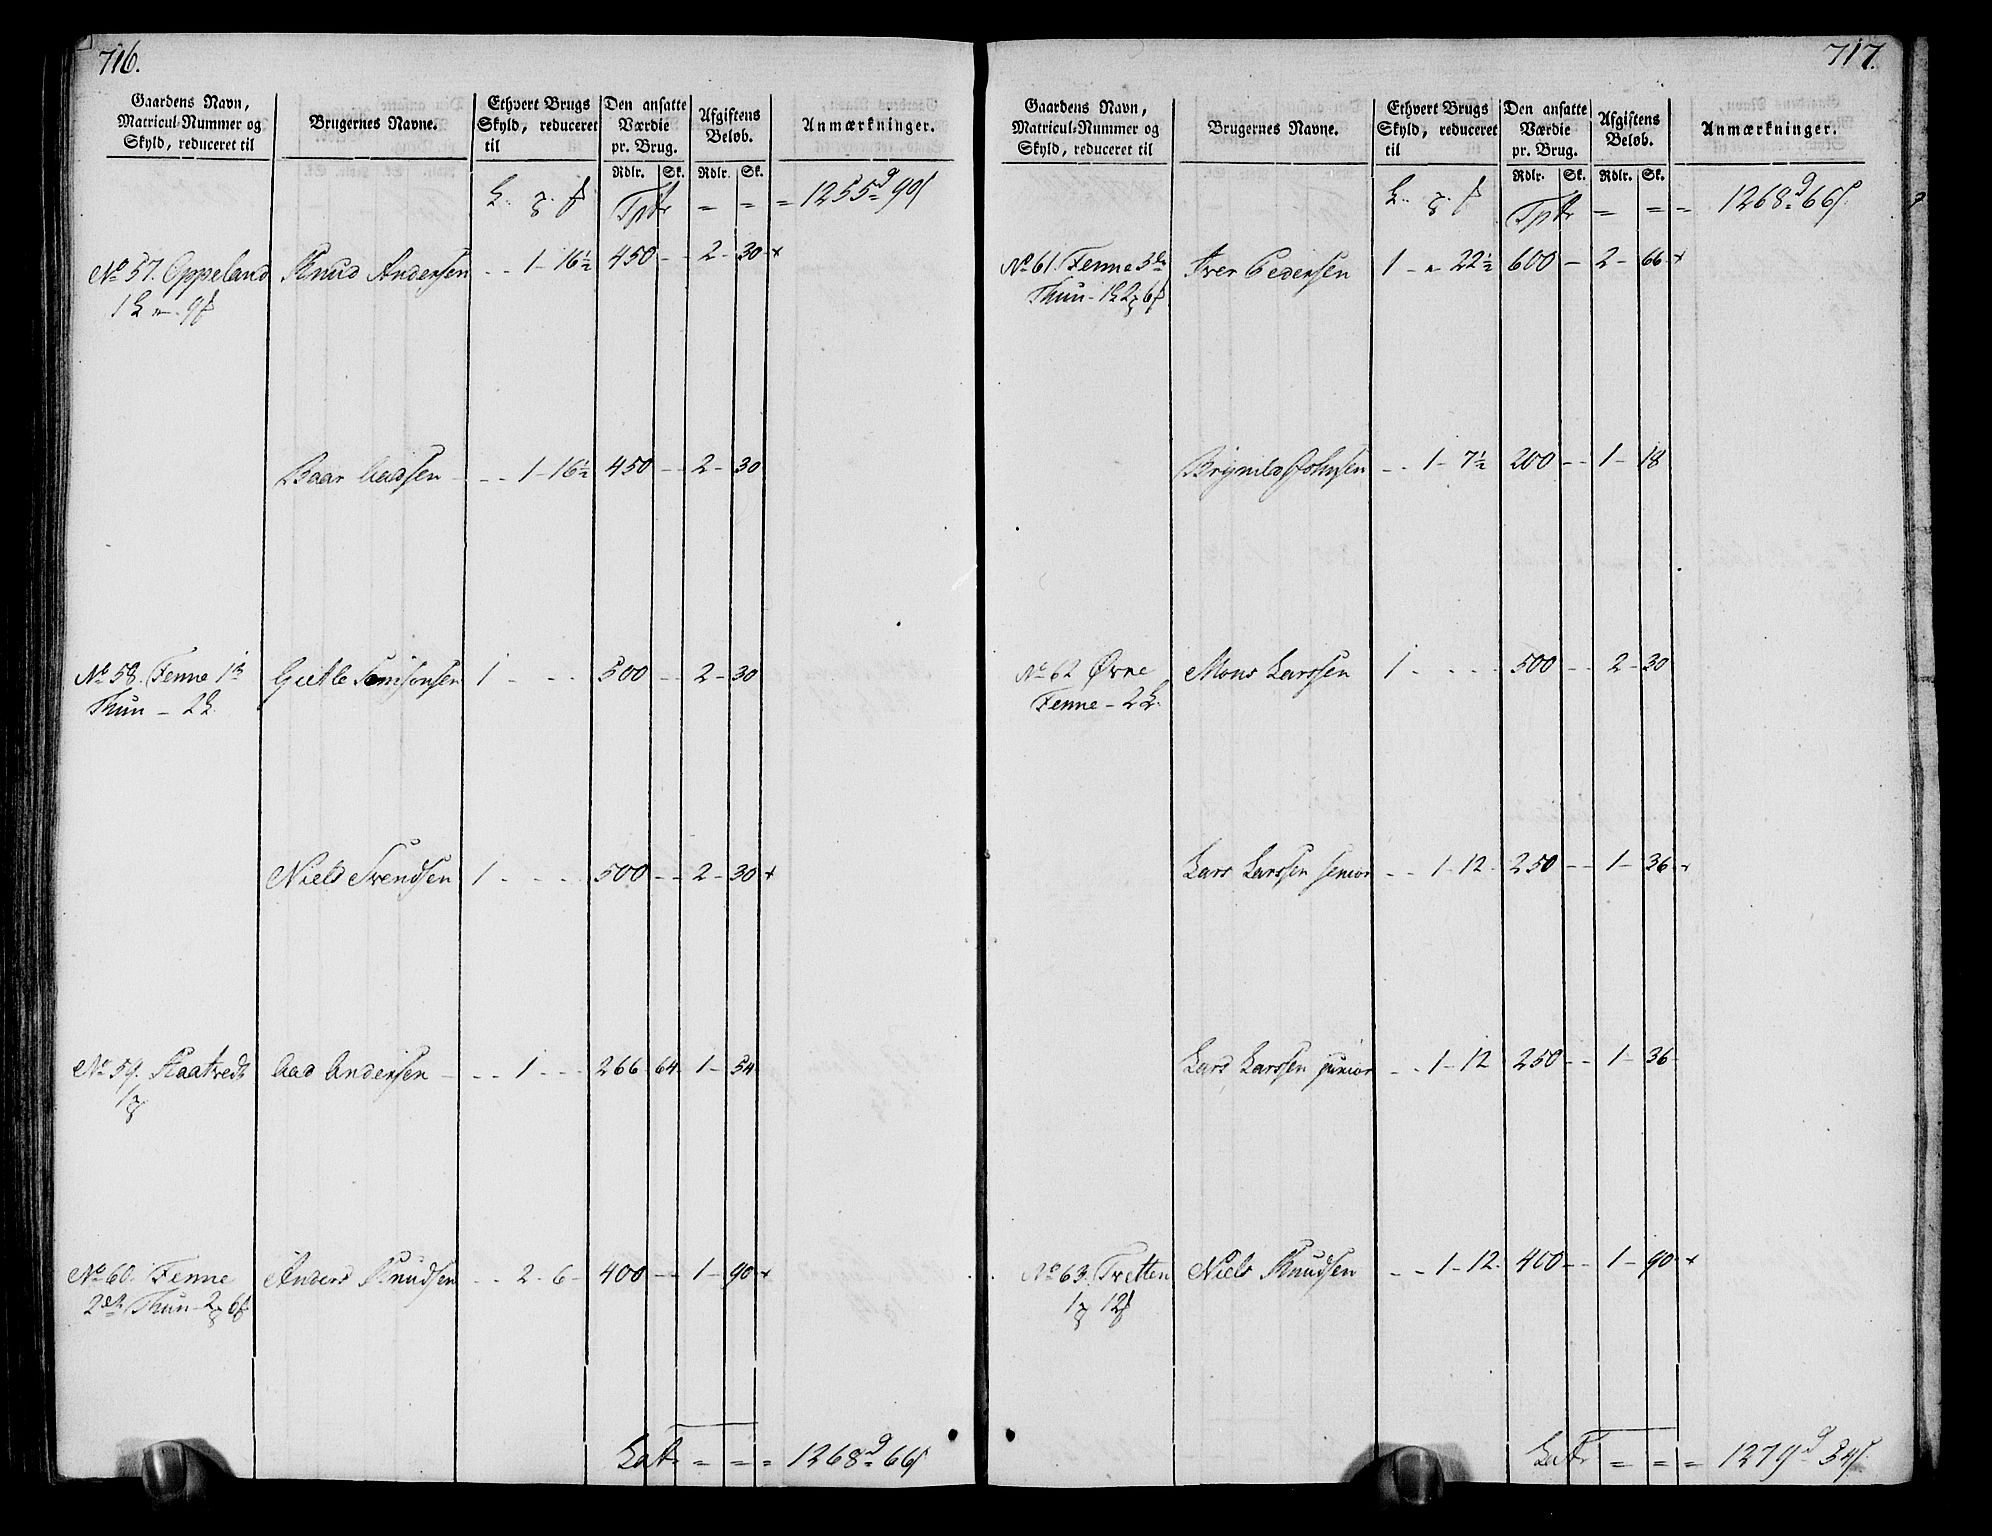 716.
Gaardens Navn, Matricul-Nummer og Skyld, reduceret til
Brugernes Navne.
Ethvert Brugs Skyld, reduceret til
Den ansatte Værdie pr. Brug.
Afgiftens Beløb.
Anmærkninger.
Rdlr. Sk. Rdlr. Sk.
Tptr = = = 1255 d 99 s
No 57. Oppeland Knud Andersen - - 1 - 16½ 450 - - 2 - 30 +
1 L „ - 9
Baar Aadsen - - - 1 - 16½ 450 - - 2 - 30
No 58. Fenne 1te Gietle Samsonsen 1 - - - 500 - - 2 - 30
Thun - 2 L.
Niels Svendsen 1 - - - 500 - - 2 - 30 +
No 59. Skaatvedt Aad Andersen - - - 1 - - - 266 - 64 - 1 - 54
1
No 60. Fenne Anders Knudsen - - 2 - 6 - 400 - - 1 - 90 +
2den Thun - 2 6
Latr = = = 1268 d 66 s
717.
Gaardens Navn, Matricul-Nummer og Skyld, reduceret til
Brugernes Navne.
Ethvert Brugs Skyld, reduceret til
Den ansatte Værdie pr. Brug.
Afgiftens Beløb.
Anmærkninger.
Rdlr. Sk. Rdlr. Sk.
Tptr = = = 1268 d 66 s
No 61. Fenne 3die Iver Pedersen 1 - „ - 22½ 600 - 2 - 66 +
Thun - 1 L 2 6
Brynild Johnsen - - 1 - 7½ 200 - - 1 - 18
No 62 Øvre Mons Larssen 1 - - - - 500 - - 2 - 30
Fenne - 2 L.
Lars Larssen senior - - 1 - 12 - 250 - - 1 - 36 +
Lars Larssen junior - - 1 - 12 250 - - 1 - 36 -
No 63. Tvetten Niels Knudsen - - 1 - 12 - 400 - - 1 - 90 +
1 12
Latr = = = 1279 d 54 s